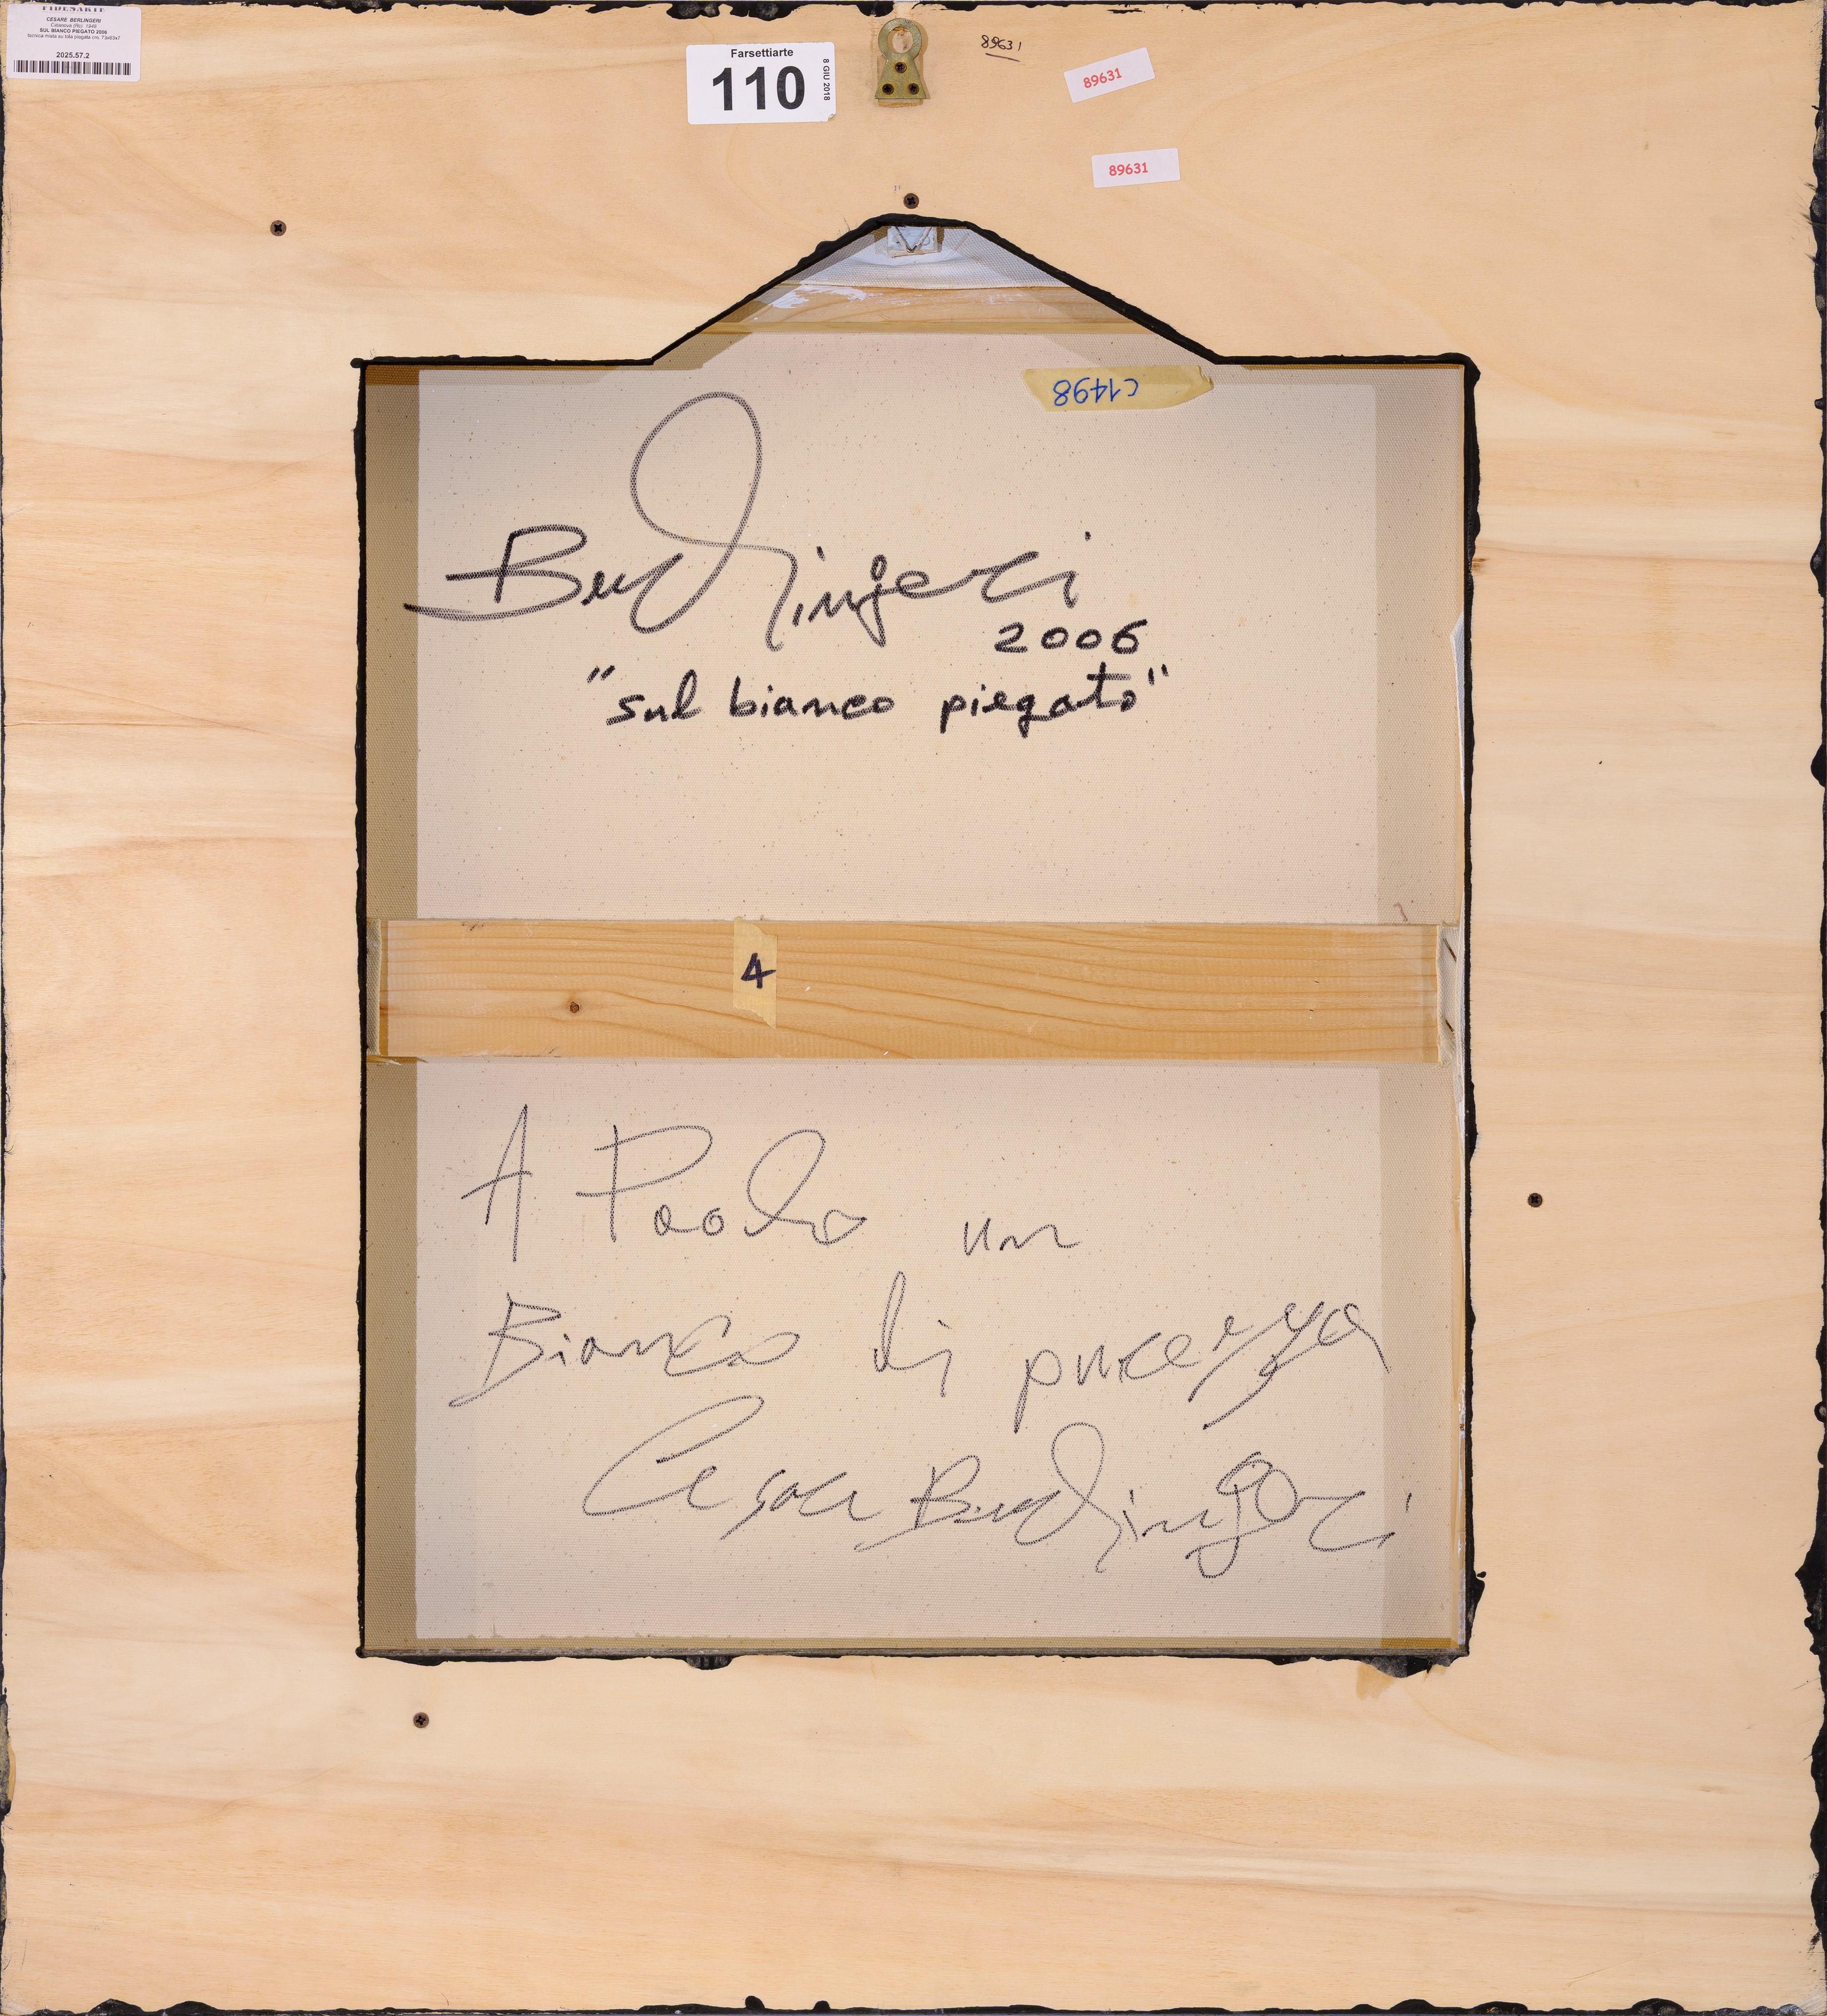 FIDESARTE
CESARE BERLINGERI
SUL BIANCO PIEGATO 2006
tecnica mista su tela piegata cm. 73x63x7
2025.57.2
Farsettiarte
110
8 GIU 2018
89631
89631
89631
C1498
Berlingeri
2006
"sul bianco piegato"
4
A Paolo un
Bianco di purezza
Cesare Berlingeri